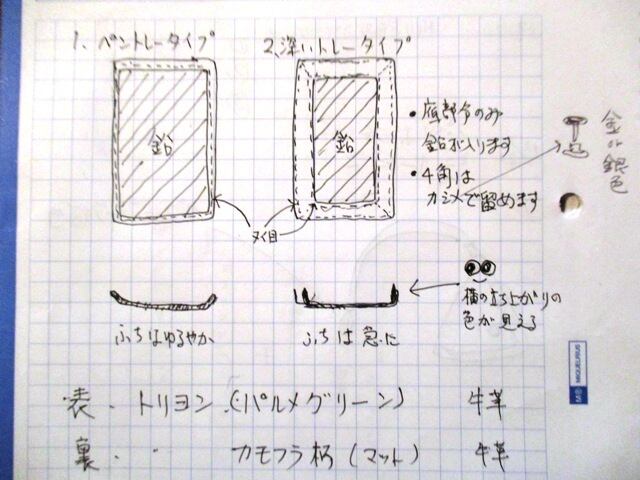 1、ペントレータイプ
2、深いトレータイプ
鉛
鉛
・底部分のみ
鉛が入ります
・4角は
カシメで留めます
金or銀色
ヌイ目
横の立ち上がりの
色が見える
ふちはゆるやか
ふちは急に
表. トリヨン.(パルメグリーン) 牛革
裏. 〃 カモフラ柄(マット) 牛革
MIQUELRIUS